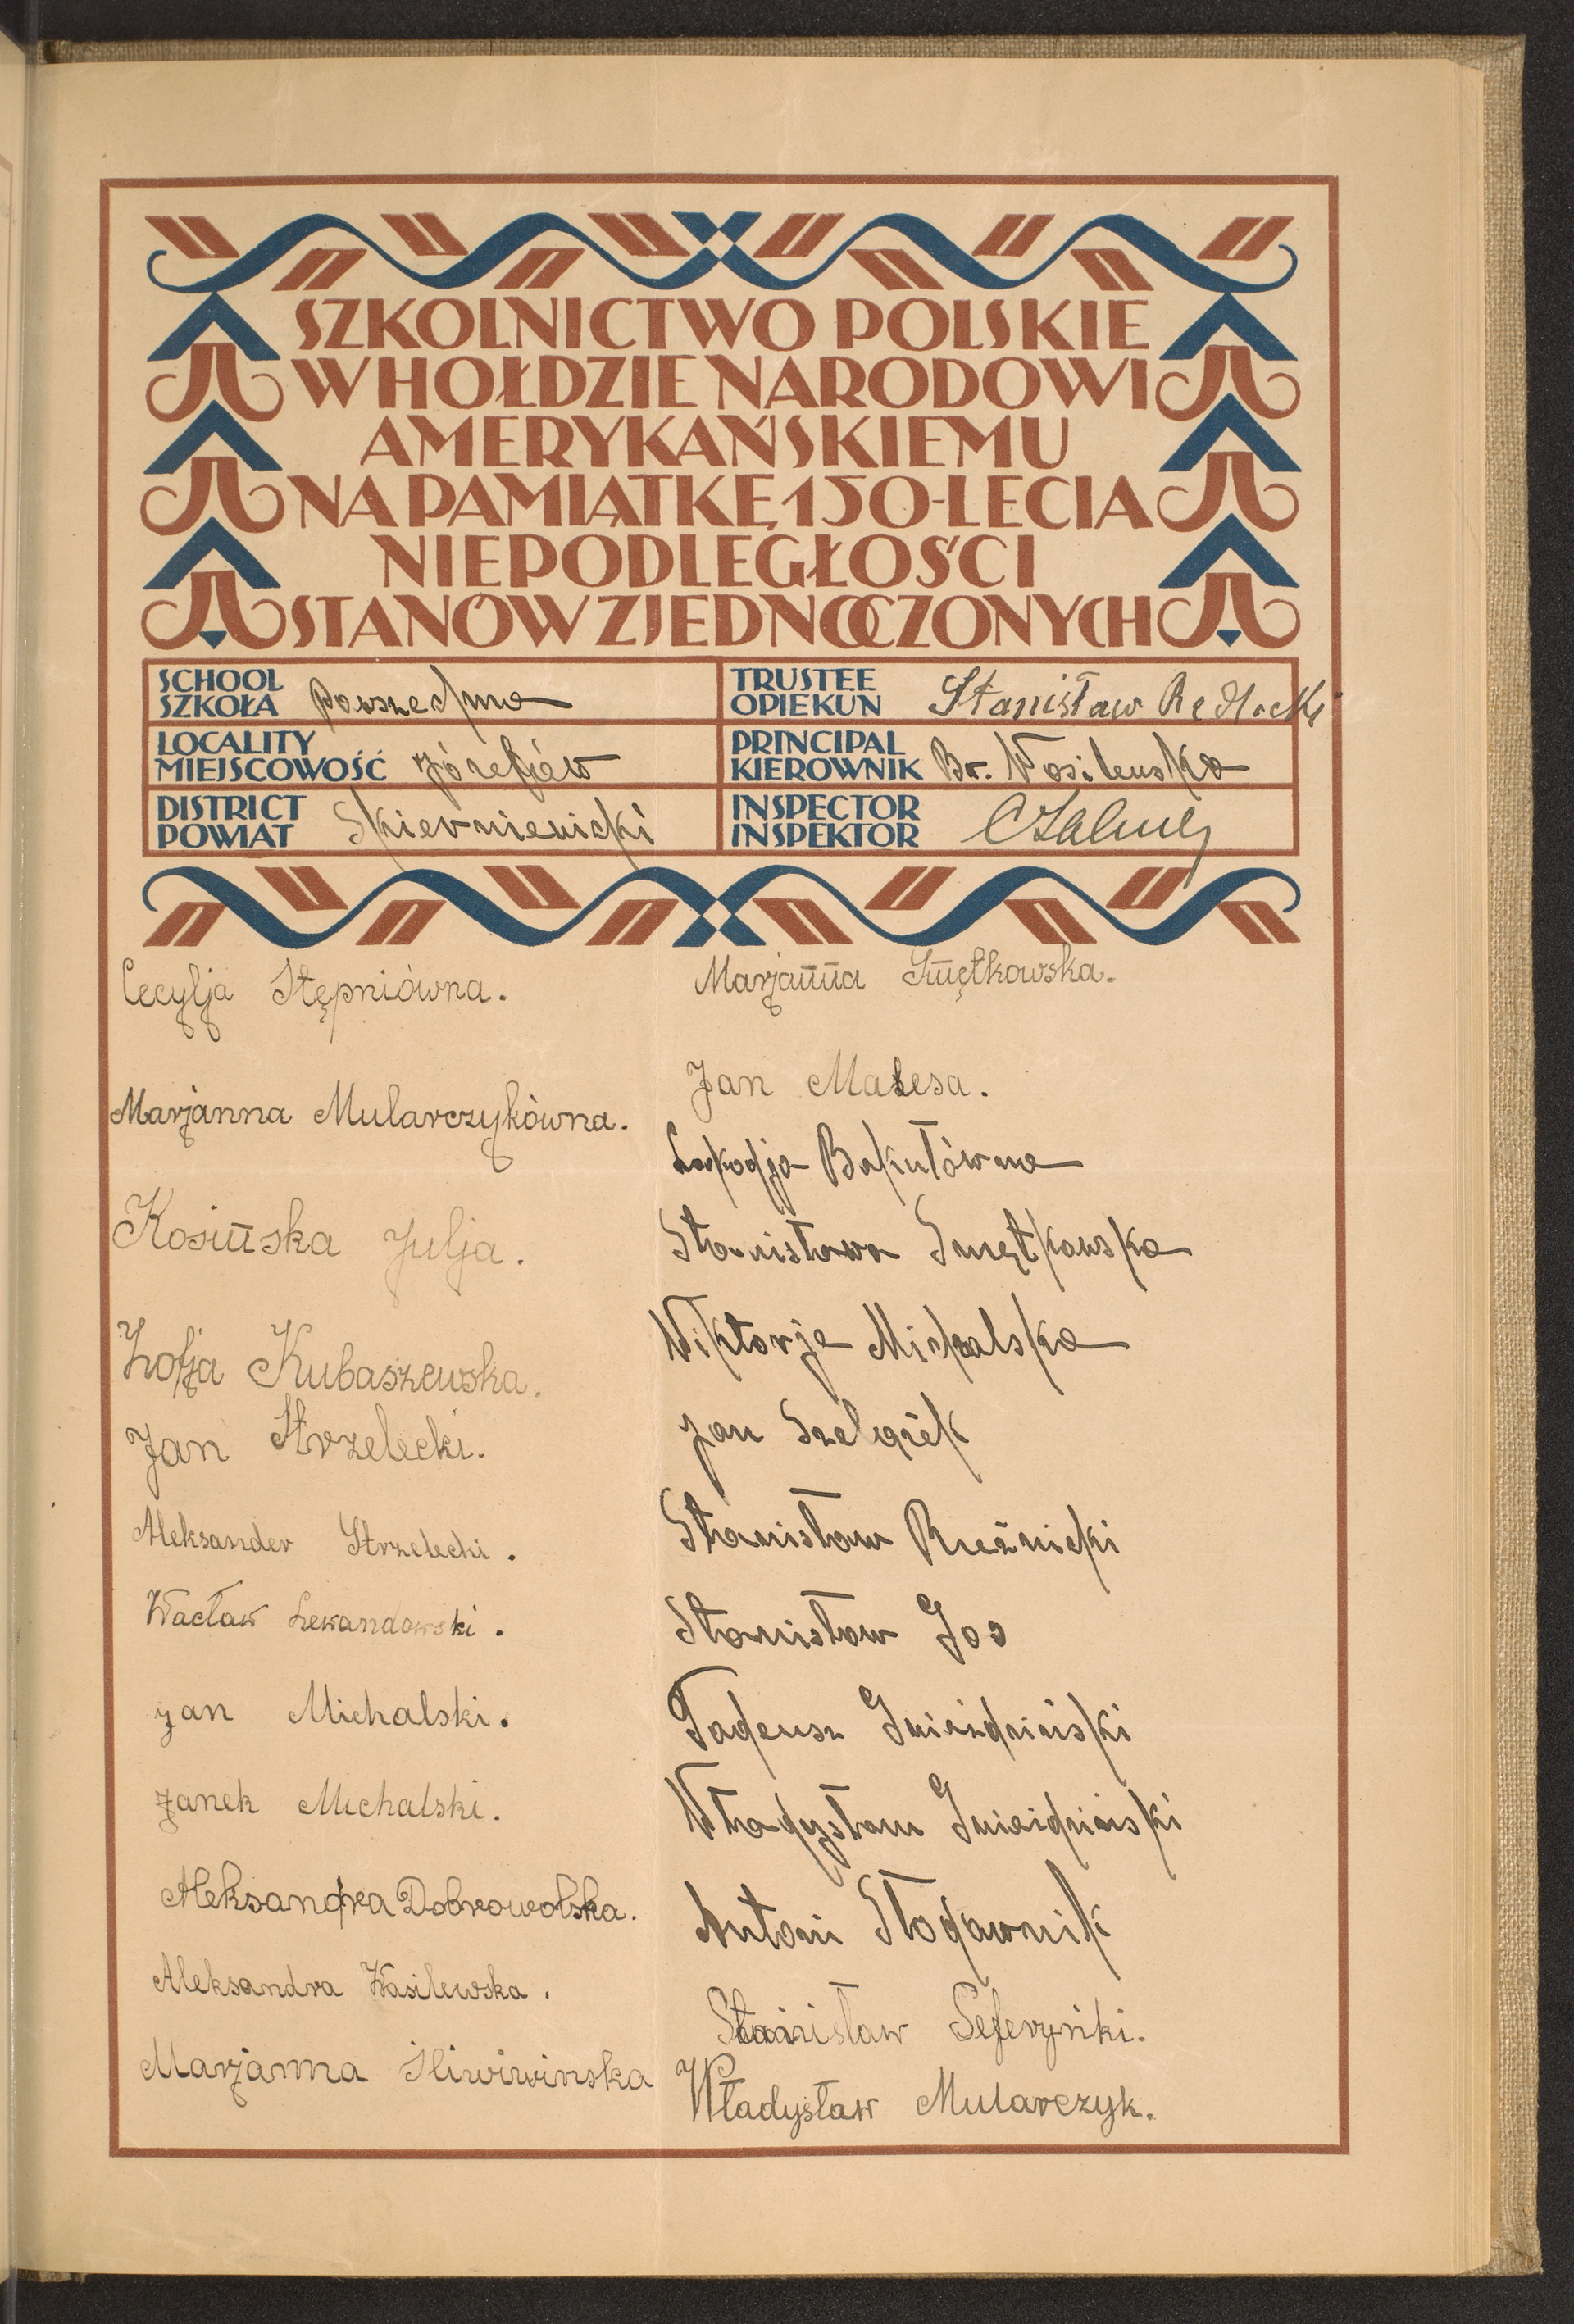 SZKOLNICTWO POLSKIE
W HOŁDZIE NARODOWI
AMERYKAŃSKIEMU
NA PAMIĄTKĘ 150-LECIA
NIEPODLEGŁOŚCI
STANÓW ZJEDNOCZONYCH
SCHOOL
SZKOŁA Powszechna
TRUSTEE
OPIEKUN Stanisław
LOCALITY
MIEJSCOWOŚĆ Józefiów
PRINCIPAL
KIEROWNIK Br. Wasilewska
DISTRICT
POWIAT Skierniewicki
INSPECTOR
INSPEKTOR
Cecylja Stępniówna.
Marjanna Mularczykówna.
Kosińska Julja.
Zofja Kubaszewska.
Jan Strzelecki.
Aleksander Strzelecki.
Wacław Lewandowski.
Jan Michalski.
Janek Michalski.
Aleksandra Dobrowolska.
Aleksandra Wasilewska.
Marjanna Śliwiwinska
Marjanna Smętkowska.
Jan Malesa.
Bakułówna
Stanisława Smętkowska
Wiktorja Michalska
Jan Szelążek
Stanisław Rzeźnicki
Stanisław Jos
Tadeusz Gnieździński
Władysław Gnieździński
Antoni Stodawnik
Stanisław Seferyński.
Władysław Mularczyk.